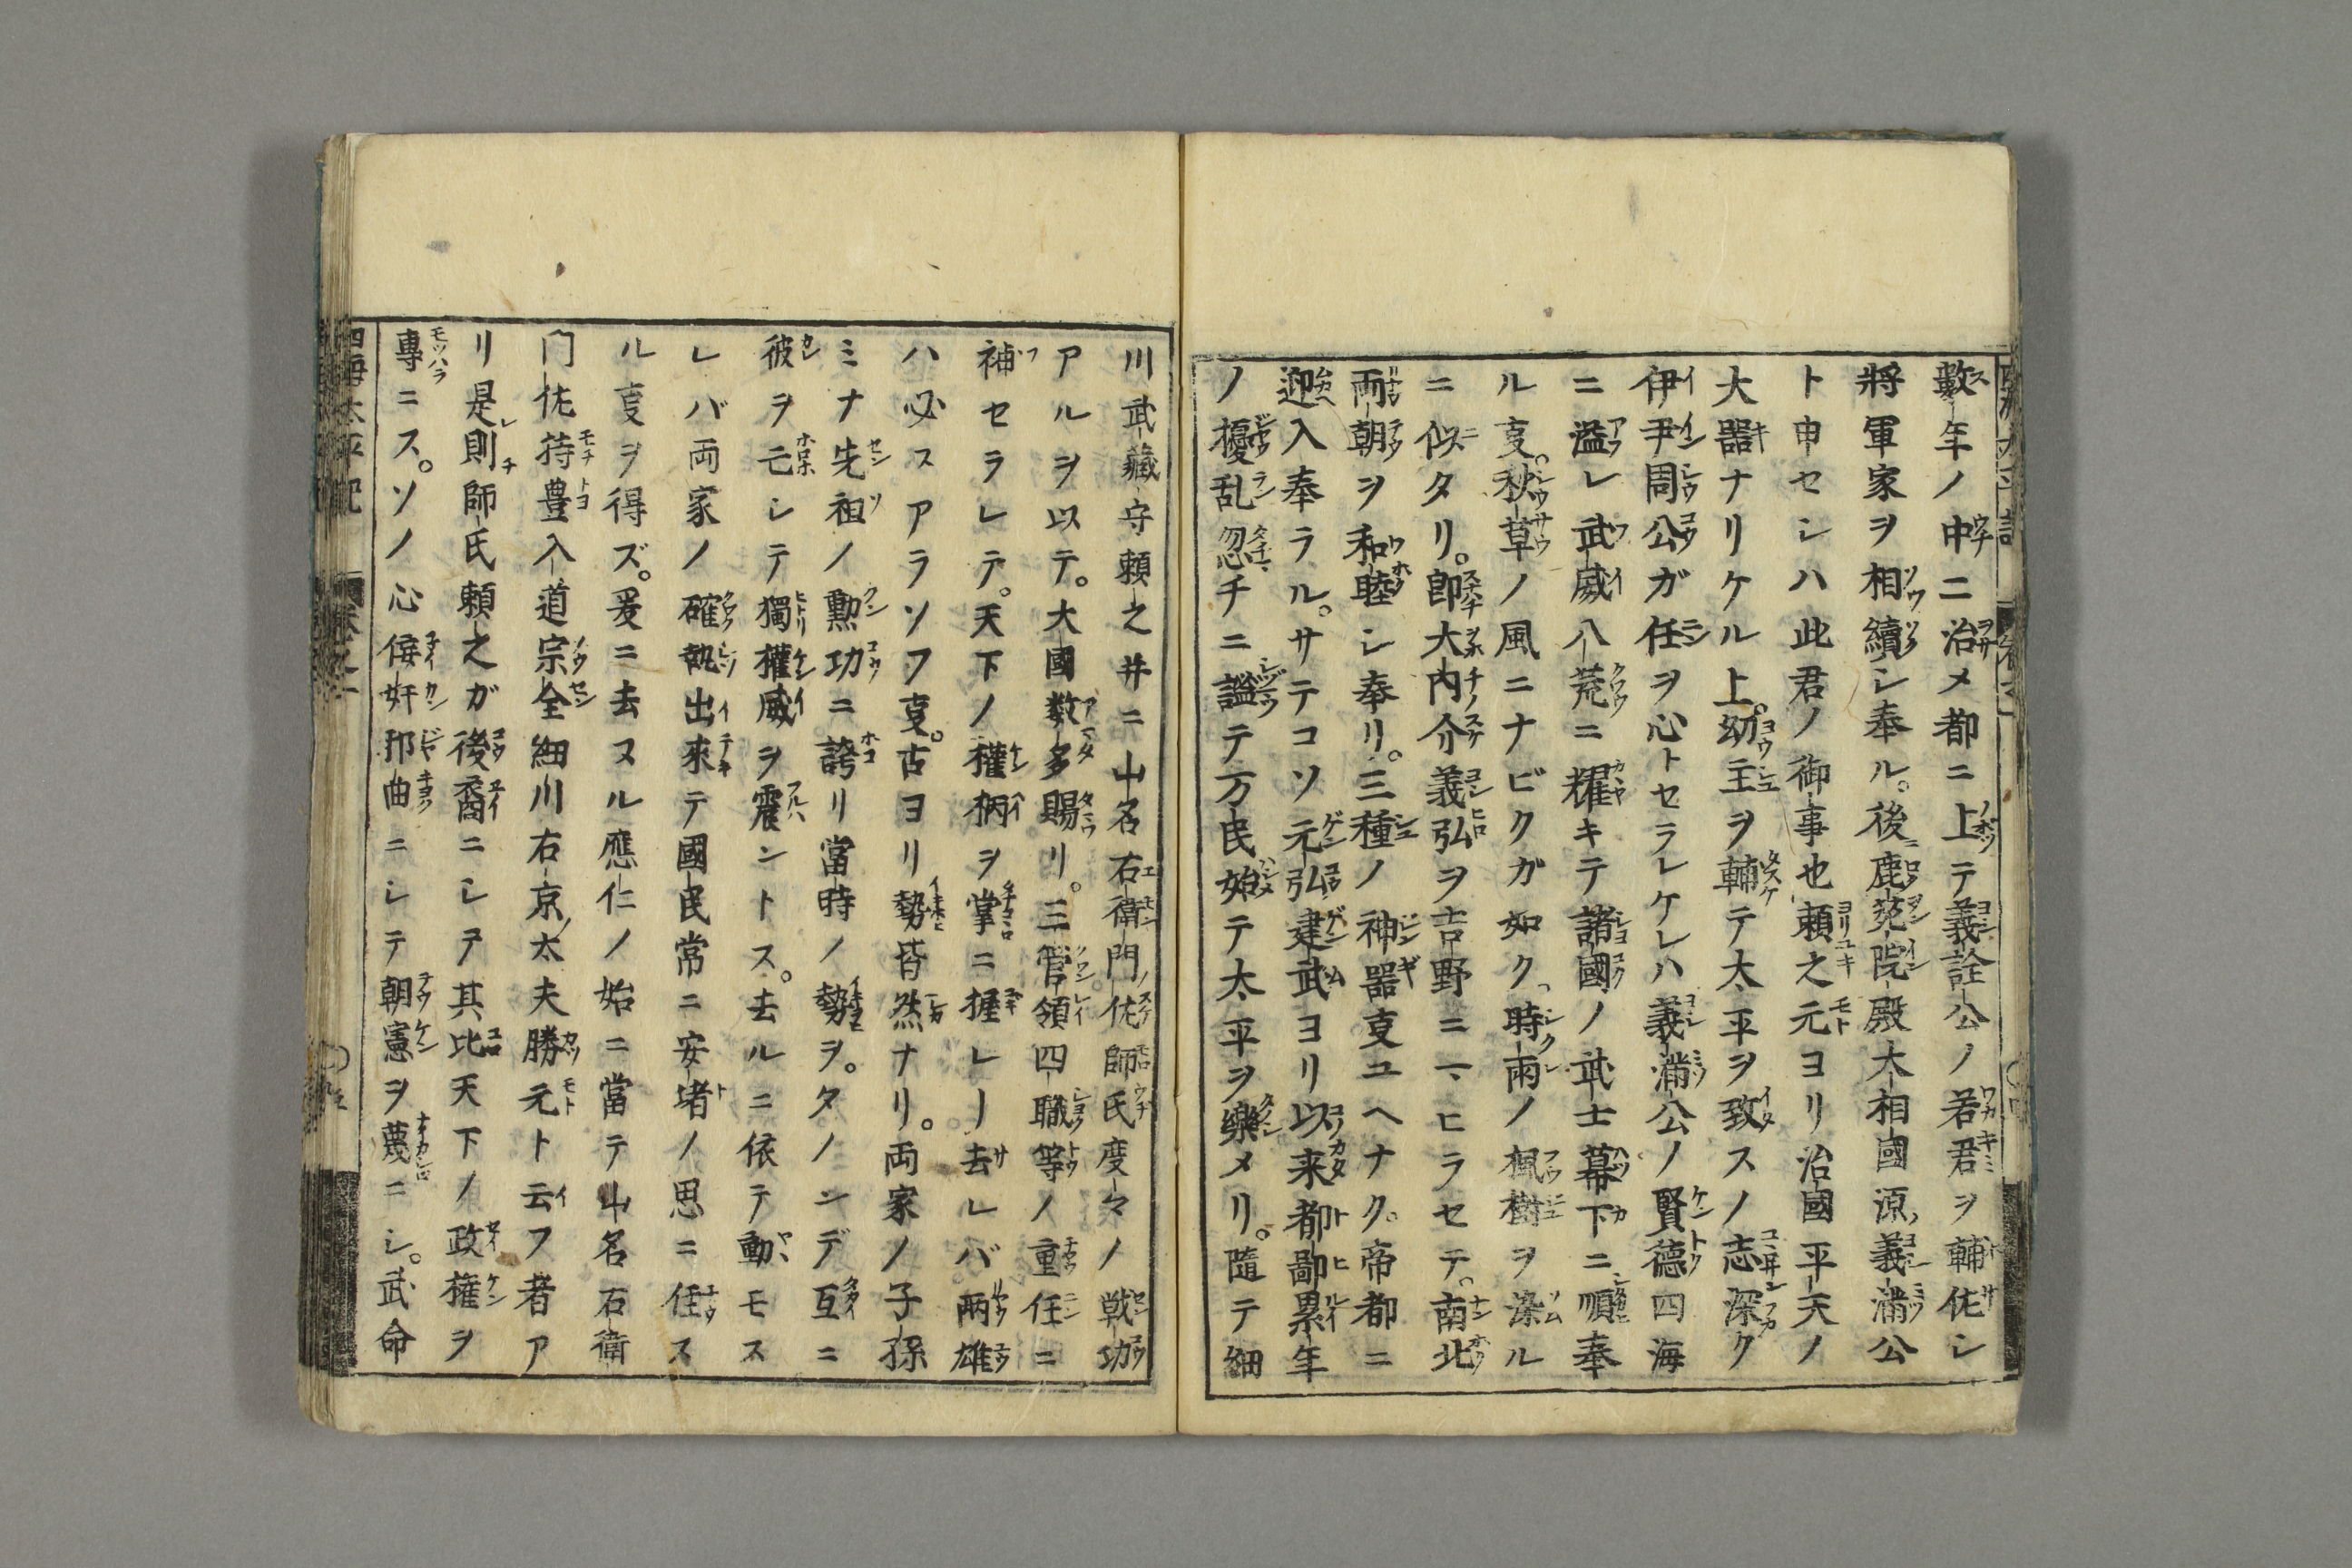 數年ノ中ニ治メ都ニ上テ義詮公ノ若君ヲ輔佐シ
將軍家ヲ相續シ奉ル。後鹿苑院殿大相國源義満公
ト申セシハ此君ノ御事也頼之元ヨリ治國平天ノ
大器ナリケル上。幼主ヲ輔テ太平ヲ致スノ志深ク
伊尹周公ガ任ヲ心トセラレケレハ義満公ノ賢德四海
ニ溢レ武威八荒ニ耀キテ諸國ノ武士幕下ニ順奉
ル亊。秋草ノ風ニナビクガ如ク時雨ノ楓樹ヲ染ル
ニ似タリ。卽大内介義弘ヲ吉野ニヒラセテ。南北
両朝ヲ和睦シ奉リ。三種ノ神器亊ユヘナク。帝都ニ
迎入奉ラル。サテコソ元弘建武ヨリ以来都鄙累年
ノ擾乱忽チニ謐テ万民始テ太平ヲ樂メリ。隨テ細
川武藏守頼之并ニ山名右衛門佐師氏度々ノ戦功
アルヲ以テ。大國数多賜リ。三管領四職等ノ重任ニ
補セラレテ。天下ノ權柄ヲ掌ニ握レリ去レバ両雄
ハ必スアラソフ亊。古ヨリ勢皆然ナリ。両家ノ子孫
ミナ先祖ノ勲功ニ誇リ當時ノ勢ヲ。タノンデ互ニ
彼ヲ亡シテ獨權威ヲ震ントス。去ルニ依テ動モス
レバ両家ノ確執出來テ國民常ニ安堵ノ思ニ任ス
ル亊ヲ得ズ。爰ニ去ヌル應仁ノ始ニ當テ山名右衛
门佐持豊入道宗全細川右京太夫勝元ト云フ者ア
リ是則師氏頼之ガ後裔ニシテ其比天下ノ政權ヲ
專ニス。ソノ心侫奸邪曲ニシテ朝憲ヲ蔑ニシ。武命
四海太平記